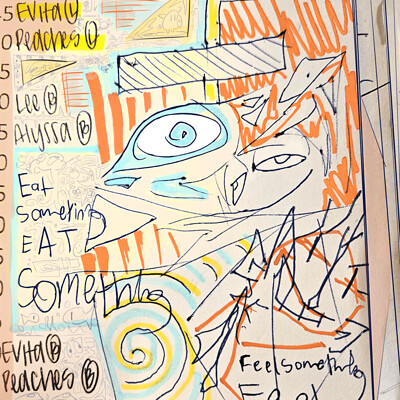 5 Evita Ⓑ
0 Peaches Ⓑ
5
0 Lee Ⓑ
5 Alyssa Ⓑ
0
5 Eat
0 something
5 EAT
0 Something
5
0
Evita Ⓑ
Peaches Ⓑ
Feel something
Feel